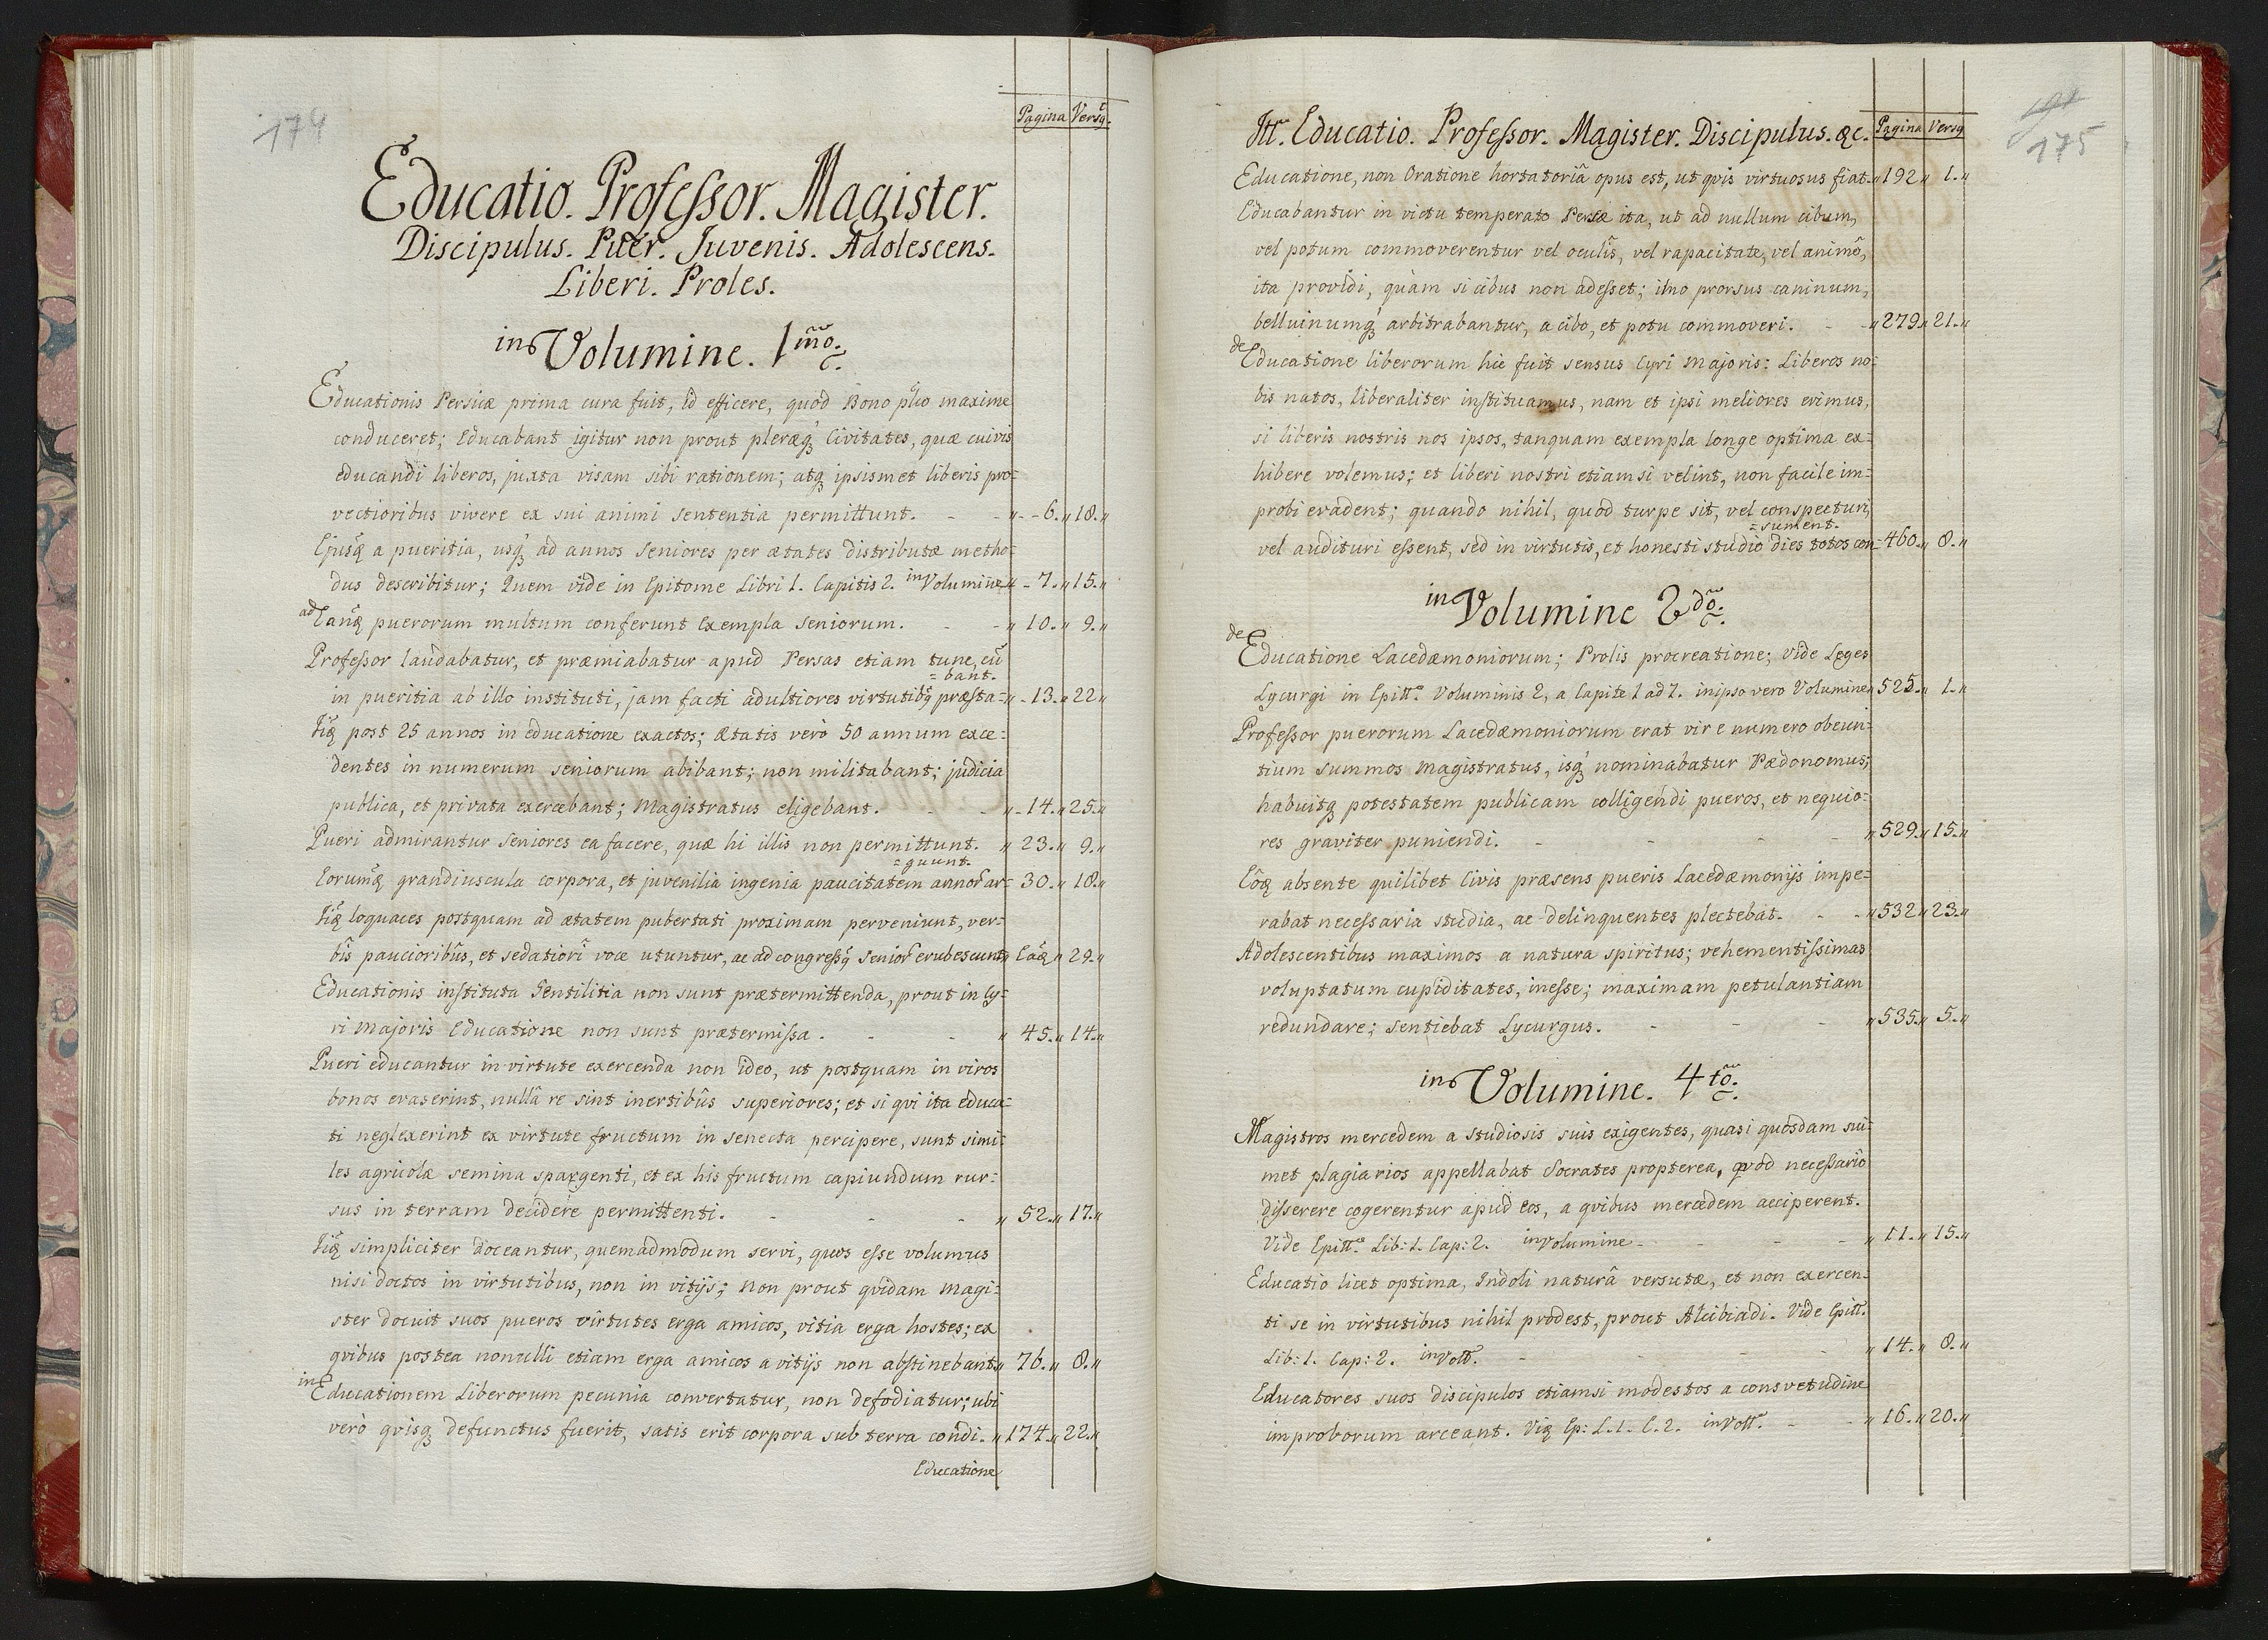 174
Pagina Versq.
Educatio. Professor. Magister.
Discipulus. Puer. Juvenis. Adolescens.
Liberi. Proles.
in Volumine. 1mo.
Educationis Persicæ prima cura fuit, id efficere, quod Bono maxime
conduceret; Educabant igitur non prout pleræq Civitates, quæ cuivis
educandi liberos, juxta visam sibi rationem; atq ipsismet liberis pro=
vectioribus vivere ex sui animi sententia permittunt. - - „ - - 6. „ 18. „
Ejusq a pueritia, usq ad annos seniores per ætates distributæ metho=
dus describitur; Quem vide in Epitome Libri 1. Capitis 2. in Volumine „ - 7. „ 15. „
ad Eanq puerorum multum conferunt Exempla seniorum. - - „ 10. „ 9. „
Professor laudabatur, et præmiabatur apud Persas etiam tunc, cū
=bant.
in pueritia ab illo instituti, jam facti adultiores virtutibq præsta= „ - 13. „ 22 „
Iiq post 25 annos in educatione exactos; Ætatis verò 50 annum exce=
dentes in numerum seniorum abibant; non militabant; judicia
publica, et privata exercebant; Magistratus eligebant. - - „ - 14. „ 25. „
Pueri admirantur seniores ea facere, quæ hi illis non permittunt. „ 23. „ 9. „
=guunt.
Eorumq grandiuscula corpora, et juvenilia ingenia paucitatem annor ar= 30. „ 18. „
Iiq loquaces postquam ad ætatem pubertati proximam perveniunt, ver=
bîs paucioribûs, et sedatiori voce utuntur, ac ad congressq senior erubescunt „ Eâq „ 29. „
Educationis instituta Gentilitia non sunt prætermittenda, prout in Cy=
ri Majoris Educatione non sunt prætermissa. - - „ 45. „ 14. „
Pueri educantur in virtute exercenda non ideo, ut postquam in viros
bonos evaserint, nullâ re sint inertibûs superiores; et si qvi ita educa=
ti neglexerint ex virtute fructum in senecta percipere, sunt simi=
les agricolæ semina spargenti, et ex his fructum capiundum rur=
sus in terram decidere permittenti. - - - „ 52. „ 17. „
Iiq simpliciter doceantur, quemadmodum servi, quos esse volumus
nisi doctos in virtutibus, non in vitijs; non prout qvidam Magi=
ster docuit suos pueros virtutes erga amicos, vitia erga hostes; ex
qvibus postea nonulli etiam erga amicos a vitijs non abstinebant „ 76. „ 8. „
in Educationem Liberorum pecunia convertatur, non defodiatur; ubi
verò qvisq defunctus fuerit, satis erit corpora sub terra condi. „ 174. „ 22. „
Educatione
175
Itt. Educatio. Professor. Magister. Discipulus. &c. Pagina Versq
Educatione, non Oratione hortatoriâ opus est, ut qvis virtuosus fiat. „ 192 „ 1. „
Educabantur in victu temperato Persæ ita, ut ad nullum cibum,
vel potum commoverentur vel oculîs, vel rapacitate, vel animô,
ita providi, quàm si cibus non adesset; imo prorsus caninum,
belluinumq arbitrabantur, a cibo, et potu commoveri. - - „ 279. „ 21. „
de Educatione liberorum hic fuit sensus Cyri Majoris: Liberos no=
bis natos, liberaliter instituamus, nam et ipsi meliores erimus,
si liberis nostris nos ipsos, tanquam exempla longe optima ex=
hibere volemus; et liberi nostri etiamsi velint, non facile im=
probi evadent; quando nihil, quod turpe sit, vel conspecturi,
=sument.
vel audituri essent, sed in virtutis, et honesti studio dies totos con= 460. „ 8. „
in Volumine 2do.
de Educatione Lacedæmoniorum; Prolis procreatione; vide Leges
Lycurgi in Epitt. Voluminis 2, a Capite 1 ad 7. in ipso vero Volumine „ 525. „ 1. „
Professor puerorum Lacedæmoniorum erat vir e numero obeun=
tium summos Magistratus, isq nominabatur Pædonomus;
habuitq potestatem publicam colligendi pueros, et nequio=
res graviter puniendi. - - - „ 529. „ 15. „
Eôq absente quilibet Civis præsens pueris Lacedæmonijs impe=
rabat necessaria studia, ac delinquentes plectebat. - - „ 532 „ 23. „
Adolescentibus maximos a natura spiritus; vehementissimas
voluptatum cupiditates, inesse; maximam petulantiam
redundare; sentiebat Lycurgus. - - - „ 535. „ 5. „
in Volumine. 4to.
Magistros mercedem a studiosis suis exigentes, quasi quosdam sui=
met plagiarios appellabat Socrates propterea, qvod necessario
disserere cogerentur apud eos, a qvibus mercedem acciperent.
Vide Epitt. Lib: 1. Cap: 2. in Volumine - - - - „ 11. „ 15. „
Educatio licet optima, Indoli naturâ versutæ, et non exercen=
ti se in virtutibus nihil prodest, prout Alcibiadi. Vide Epitt.
Lib: 1. Cap: 2. in Voll. - - - - „ 14. „ 8. „
Educatores suos discipulos etiamsi modestos a consvetudine
improborum arceant. Viq Ep: L. 1. C. 2. in Voll. - - „ 16. „ 20. „